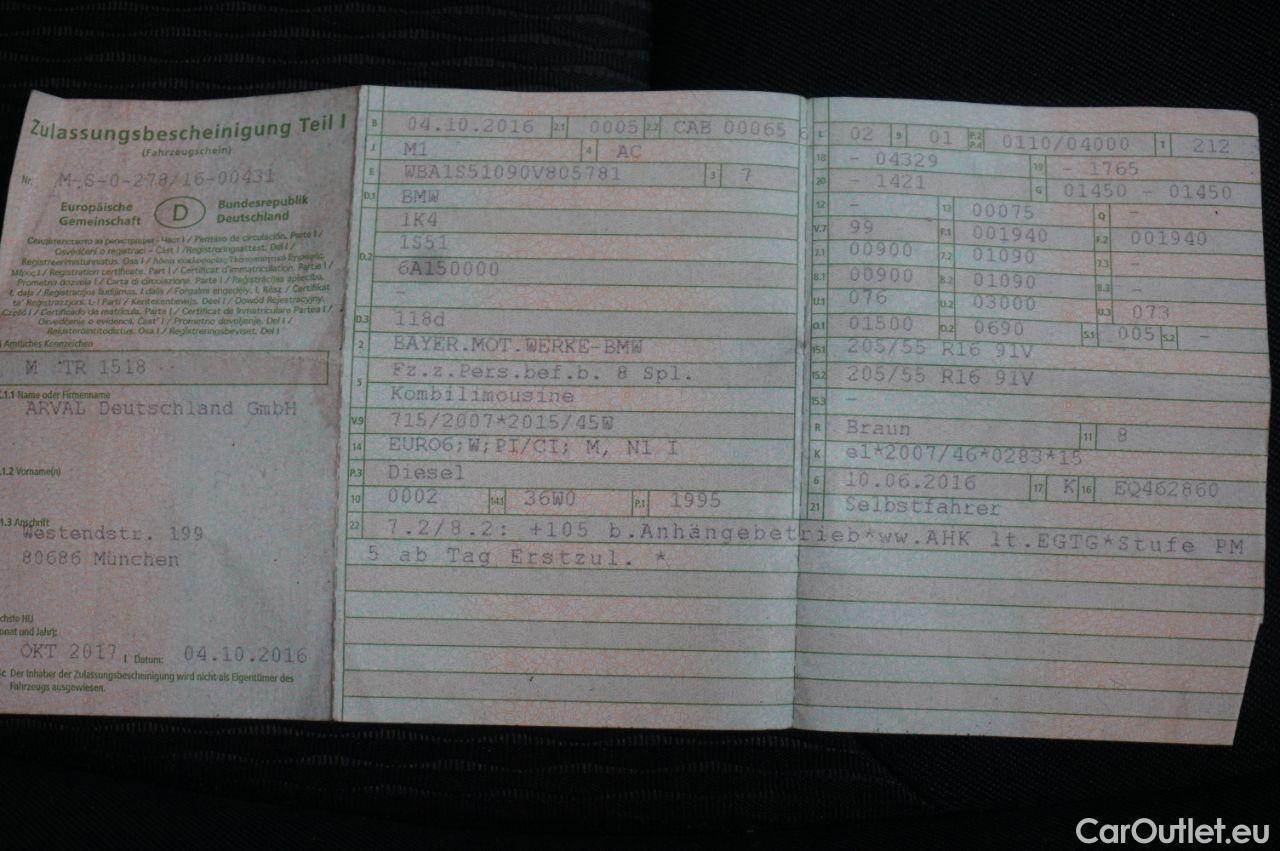 Zulassungsbescheinigung Teil I
(Fahrzeugschein)
Nr. M-S-0-278/16-00431
Europäische Gemeinschaft
D
Bundesrepublik Deutschland
Свидетелство за регистрация - Част I / Permiso de circulación. Parte I /
Osvědčení o registraci – Část I / Registreringsattest. Del I /
Registreerimistunnistus. Osa I / Άδεια κυκλοφορίας
Μέρος I / Registration certificate. Part I / Certificat d'immatriculation. Partie I /
Prometna dozvola I / Carta di circolazione. Parte I / Reģistrācijas apliecība.
I. daļa / Registracijos liudijimas. I dalis / Forgalmi engedély. I. Rész / Ċertifikat
ta' Reġistrazzjoni. L-I Parti / Kentekenbewijs. Deel I / Dowód Rejestracyjny.
Część I / Certificado de matrícula. Parte I / Certificat de înmatriculare Partea I /
Osvedčenie o evidencii. Časť I / Prometno dovoljenje. Del I /
Rekisteröintitodistus. Osa I / Registreringsbeviset. Del I
Amtliches Kennzeichen
M TR 1518
C.1.1 Name oder Firmenname
ARVAL Deutschland GmbH
.1.2 Vorname(n)
1.3 Anschrift
Westendstr. 199
80686 München
chste HU
onat und Jahr):
OKT 2017 I Datum: 04.10.2016
4c Der Inhaber der Zulassungsbescheinigung wird nicht als Eigentümer des
Fahrzeugs ausgewiesen.
B 04.10.2016 2.1 0005 2.2 CAB 00065 6
J M1 4 AC
E WBA1S51090V805781 3 7
D.1 BMW
1K4
1S51
D.2 6A150000
-
D.3 118d
2 BAYER.MOT.WERKE-BMW
5 Fz.z.Pers.bef.b. 8 Spl.
Kombilimousine
V.9 715/2007*2015/45W
14 EURO6;W;PI/CI; M, N1 I
P.3 Diesel
10 0002 14.1 36W0 P.1 1995
L 02 9 01 P.2 P.4 0110/04000 T 212
18 - 04329 19 - 1765
20 - 1421 G 01450 - 01450
12 - 13 00075 Q -
V.7 99 F.1 001940 F.2 001940
7.1 00900 7.2 01090 7.3 -
8.1 00900 8.2 01090 8.3 -
U.1 076 U.2 03000 U.3 073
O.1 01500 O.2 0690 S.1 005 S.2 -
15.1 205/55 R16 91V
15.2 205/55 R16 91V
15.3 -
R Braun 11 8
K e1*2007/46*0283*15
6 10.06.2016 17 K 16 EQ462860
21 Selbstfahrer
22 7.2/8.2: +105 b.Anhängebetrieb*ww.AHK lt.EGTG*Stufe PM
5 ab Tag Erstzul. *
CarOutlet.eu